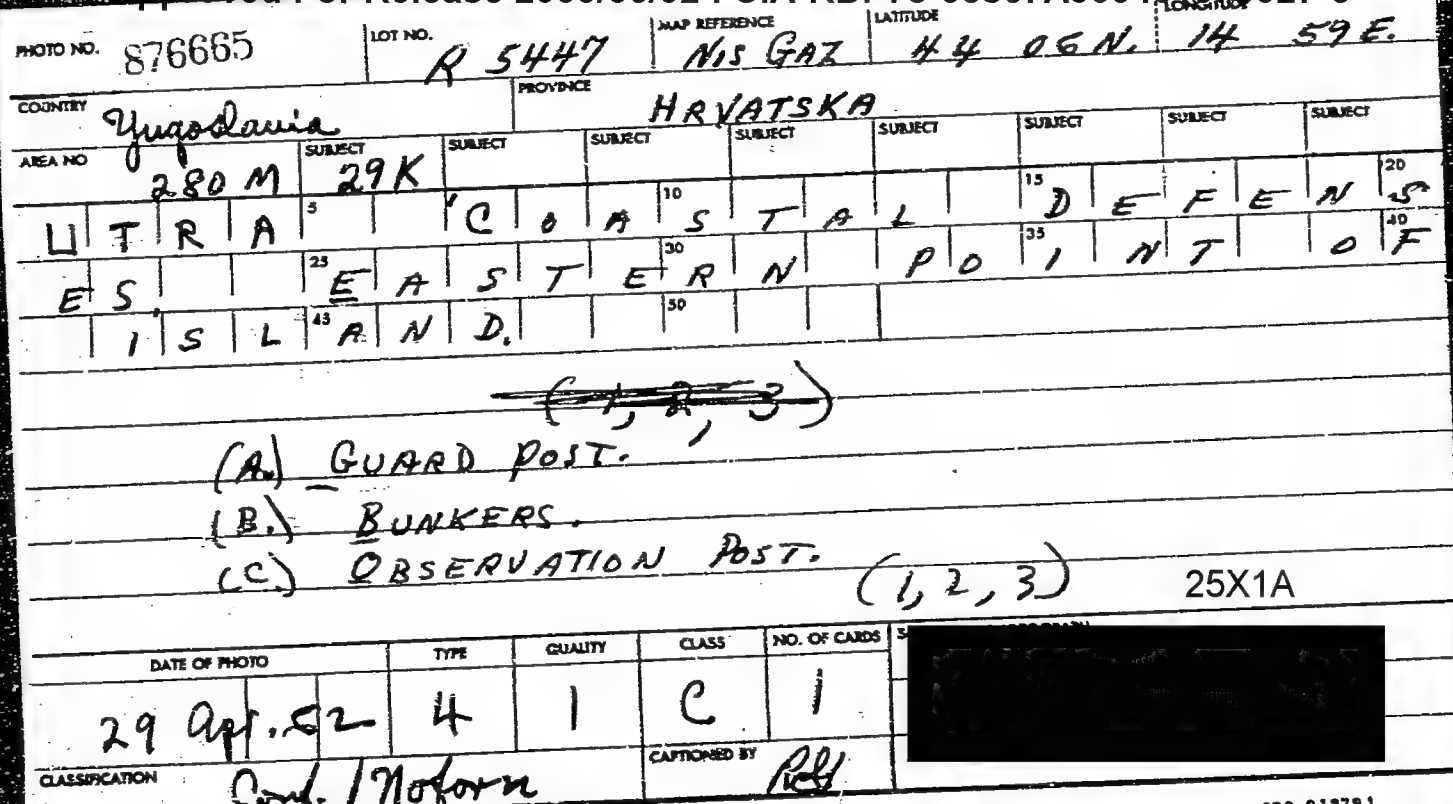 PHOTO NO. 876665 LOT NO. R 5447 MAP REFERENCE NIS GAZ LATITUDE 44 06 N. LONGITUDE 14 59 E.
COUNTRY Yugoslavia PROVINCE HRVATSKA
AREA NO 280 M SUBJECT 29K SUBJECT SUBJECT SUBJECT SUBJECT SUBJECT SUBJECT SUBJECT
UTRA 5 COA 10 STAL 15 DEFEN 20 S
ES. 25 EASTE 30 RN PO 35 INT O 40 F
ISL 45 AND. 50
(1, 2, 3)
(A.) GUARD POST.
(B.) BUNKERS.
(C.) OBSERVATION POST. (1, 2, 3) 25X1A
DATE OF PHOTO TYPE QUALITY CLASS NO. OF CARDS
29 Apr. 52 4 1 C 1
CLASSIFICATION Conf. / Noforn CAPTIONED BY